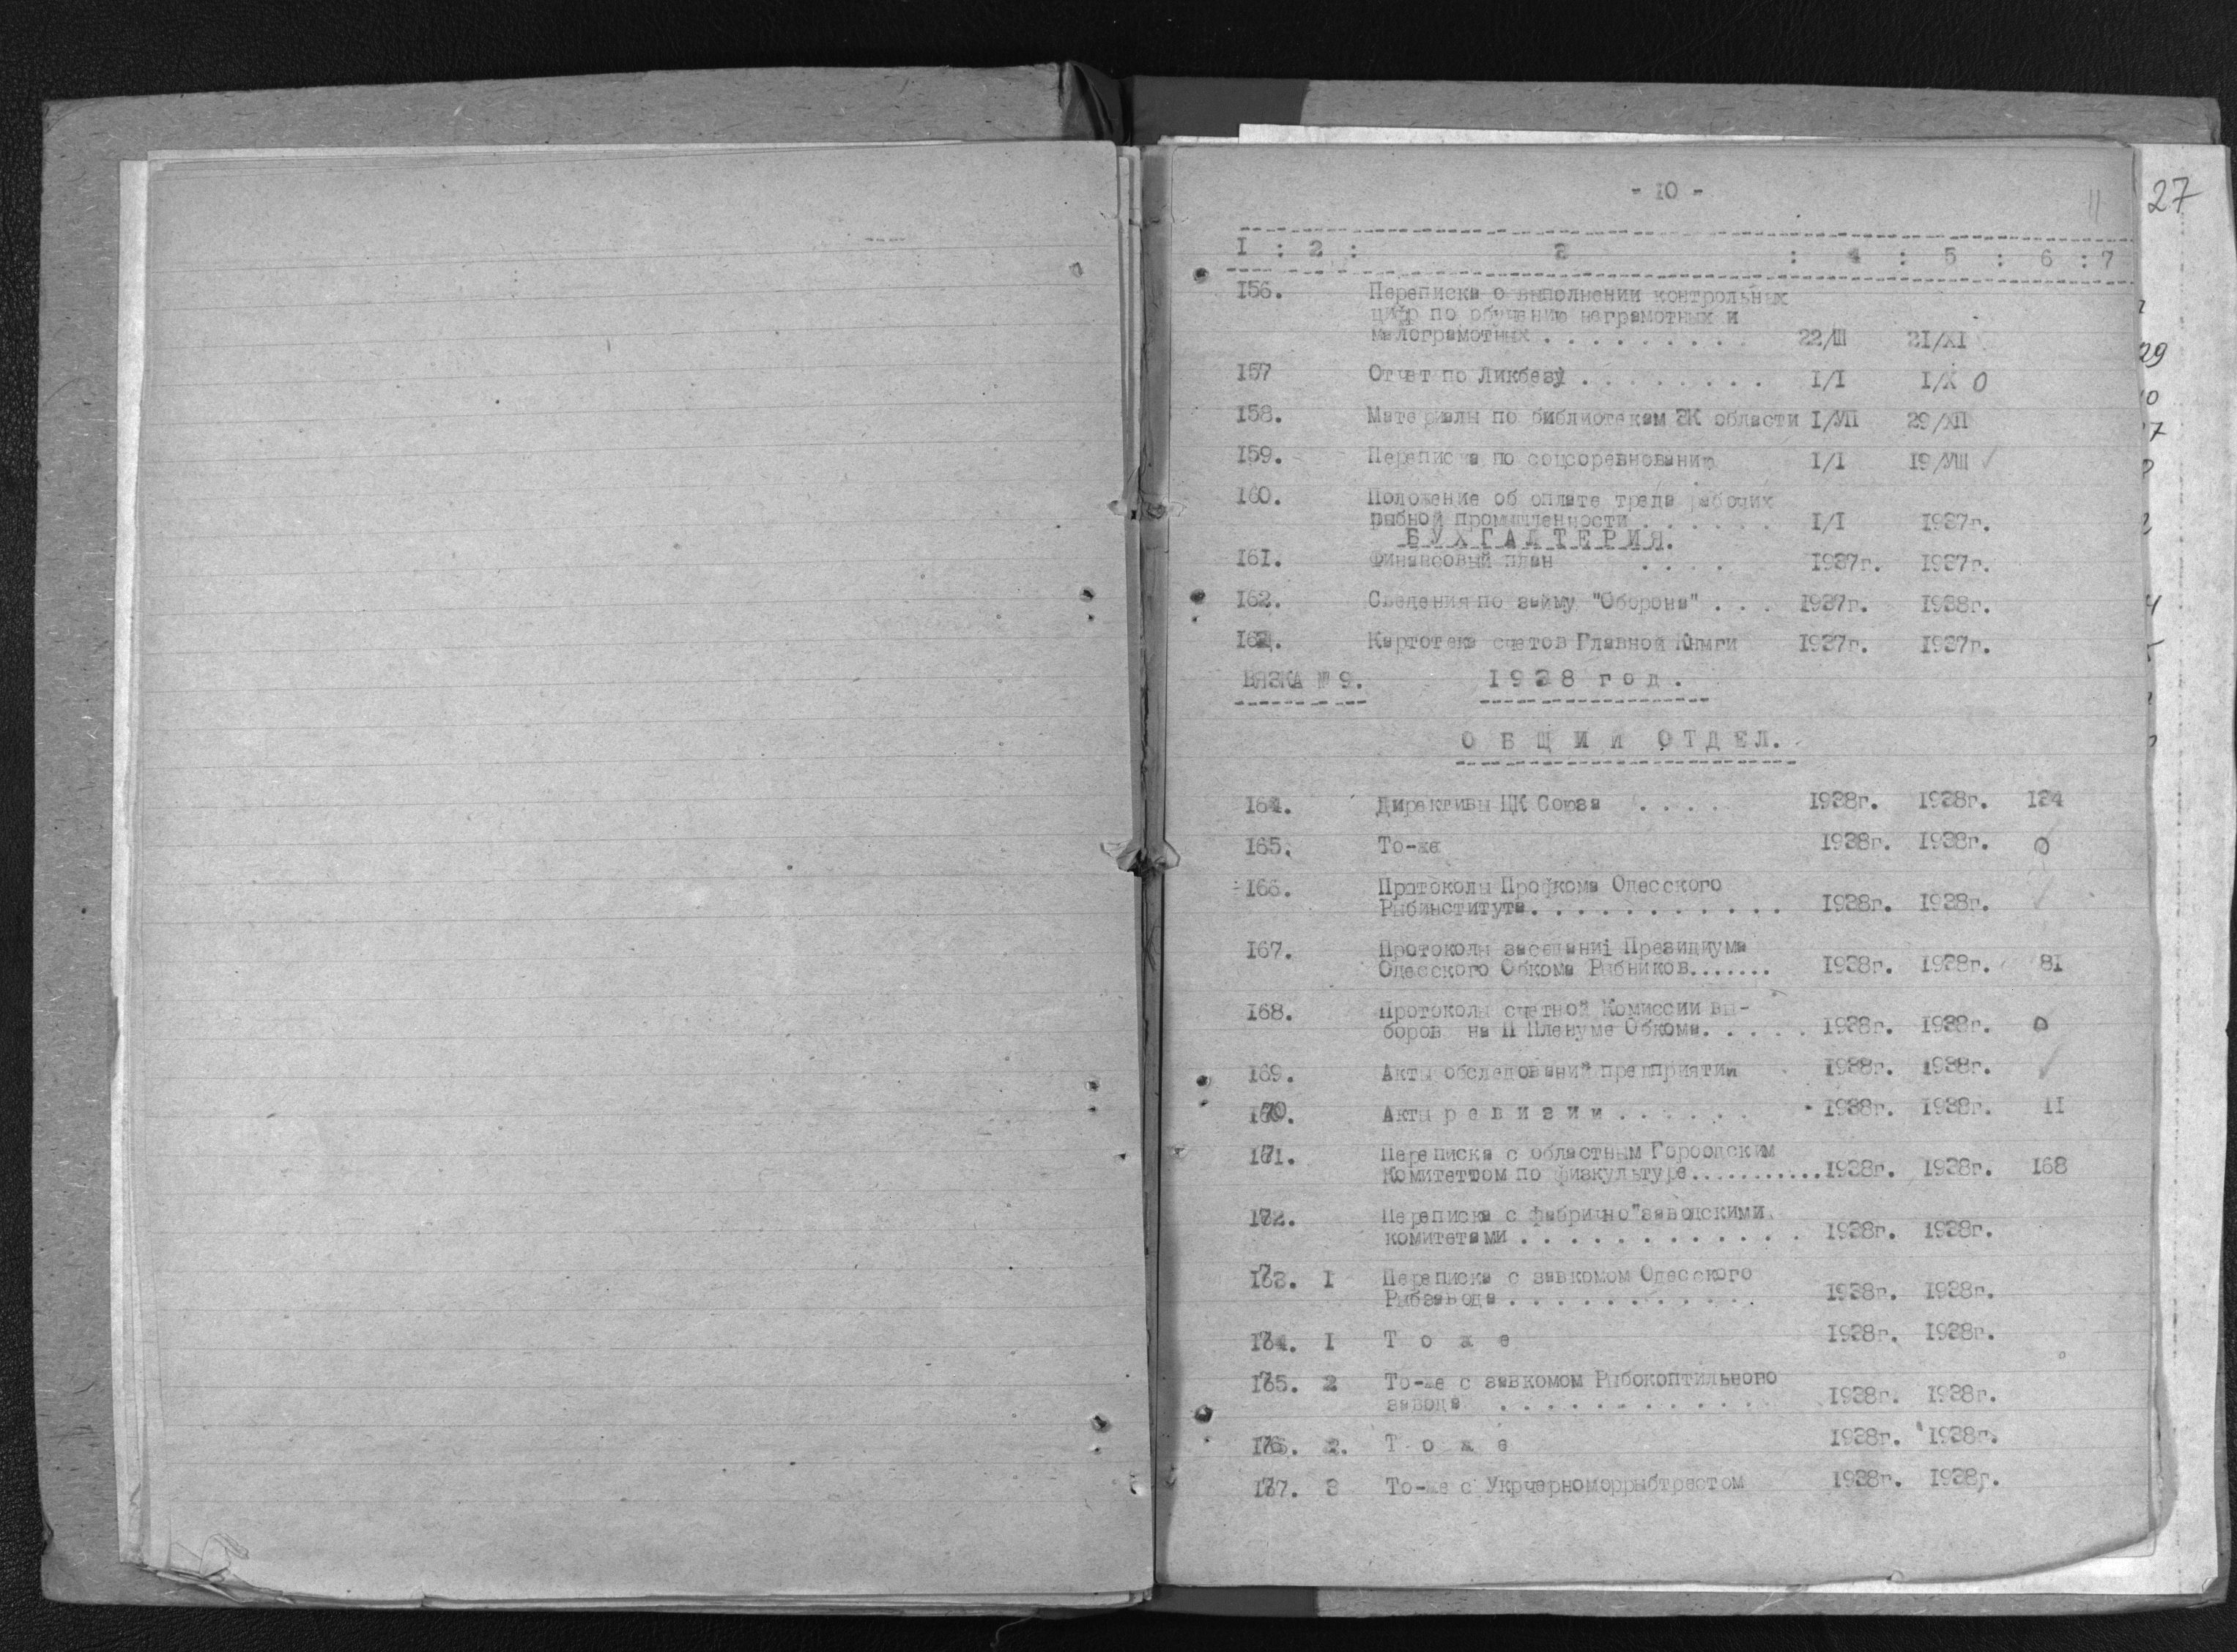 - 10 -
11
27
I : 2 : 3 : 4 : 5 : 6 : 7
156. Переписка о выполнении контрольных
цифр по обучению неграмотных и
малограмотных . . . . . . . . . 22/Ш 21/XI
157 Отчет по Ликбезу . . . . . . . . I/I I/X 0
158. Материалы по библиотекам ЗК области I/УП 29/ХП
159. Переписка по соцсоревнованию I/I 19/УШ ✓
160. Положение об оплате труда рабочих
рыбной промышленности . . . . . . I/I 1937г.
Б У Х Г А Л Т Е Р И Я.
161. Финансовый план . . . . 1937г. 1937г.
162. Сведения по займу "Оборона" . . . 1937г. 1938г.
163. Картотека счетов Главной Книги 1937г. 1937г.
ВЯЗКА № 9. 1 9 3 8 г о д .
О Б Щ И Й О Т Д Е Л.
164. Директивы ЦК Союза . . . . 1938г. 1938г. 134
165. То-же 1938г. 1938г. 0
166. Протоколы Профкома Одесского
Рыбинститута. . . . . . . . . . . 1938г. 1938г. ✓
167. Протоколы заседаниі Президиума
Одесского Обкома Рыбников....... 1938г. 1938г. 81
168. Протоколы счетной Комиссии вы-
боров на II Пленуме Обкома. . . . . 1938г. 1938г. 0
169. Акты обследований предприятии 1938г. 1938г. ✓
170. Акты р е в и з и и . . . . . . 1938г. 1938г. 11
171. Переписка с областным Городским
Комитетом по физкультуре........... 1938г. 1938г. 168
172. Переписка с фабрично"заводскими
комитетами . . . . . . . . . . . . 1938г. 1938г.
173. I Переписка с завкомом Одесского
Рыбзавода . . . . . . . . . . . 1938г. 1938г.
174. I Т о ж е 1938г. 1938г.
175. 2 То-же с завкомом Рыбокоптильного
завода . . . . . . . . . . . . 1938г. 1938г.
176. 2. Т о ж е 1938г. 1938г.
177. 3 То-же с Укрчерноморрыбтрестом 1938г. 1938г.